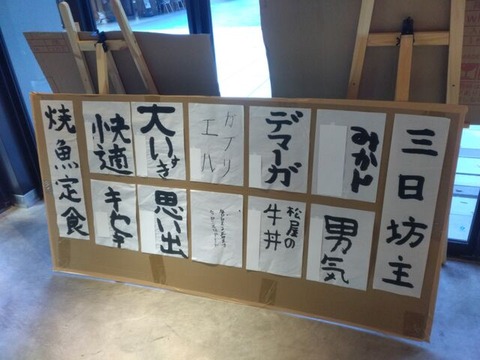 三日坊主
みかん
男気
デマーガ
松屋の
牛丼
ガブリ
エル
思い出
快適
焼魚定食